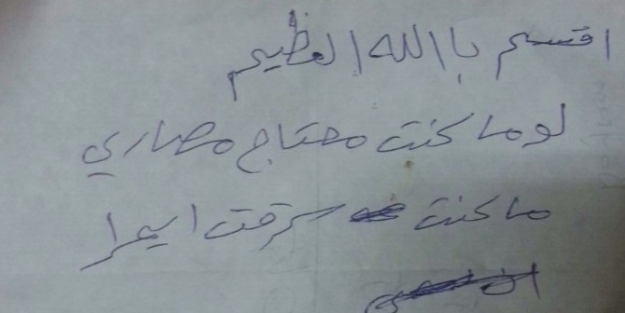 اقسم باالله العظيم
لو ما كنت محتاج مصاري
ما كنت سرقت